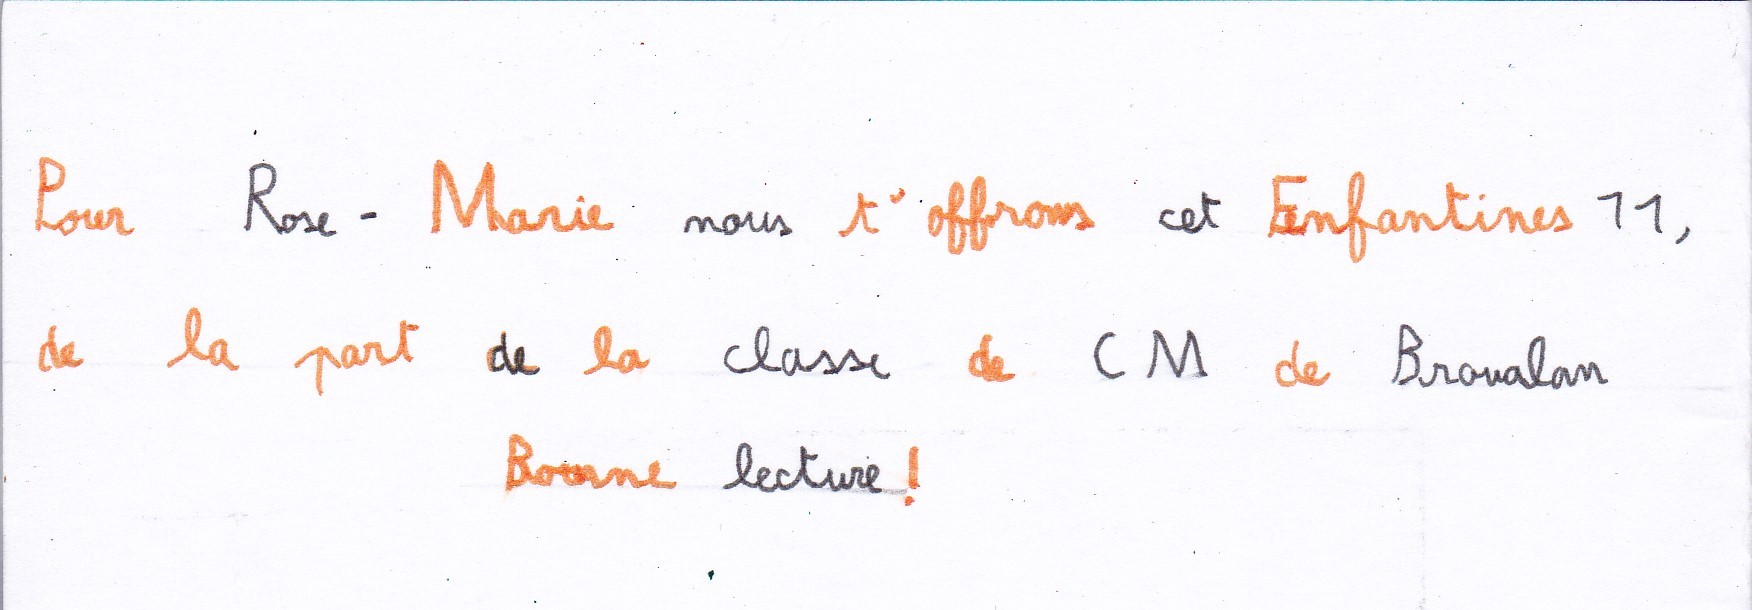 Pour Rose-Marie nous t'offrons cet Enfantines 11,
de la part de la classe de CM de Broualan
Bonne lecture !